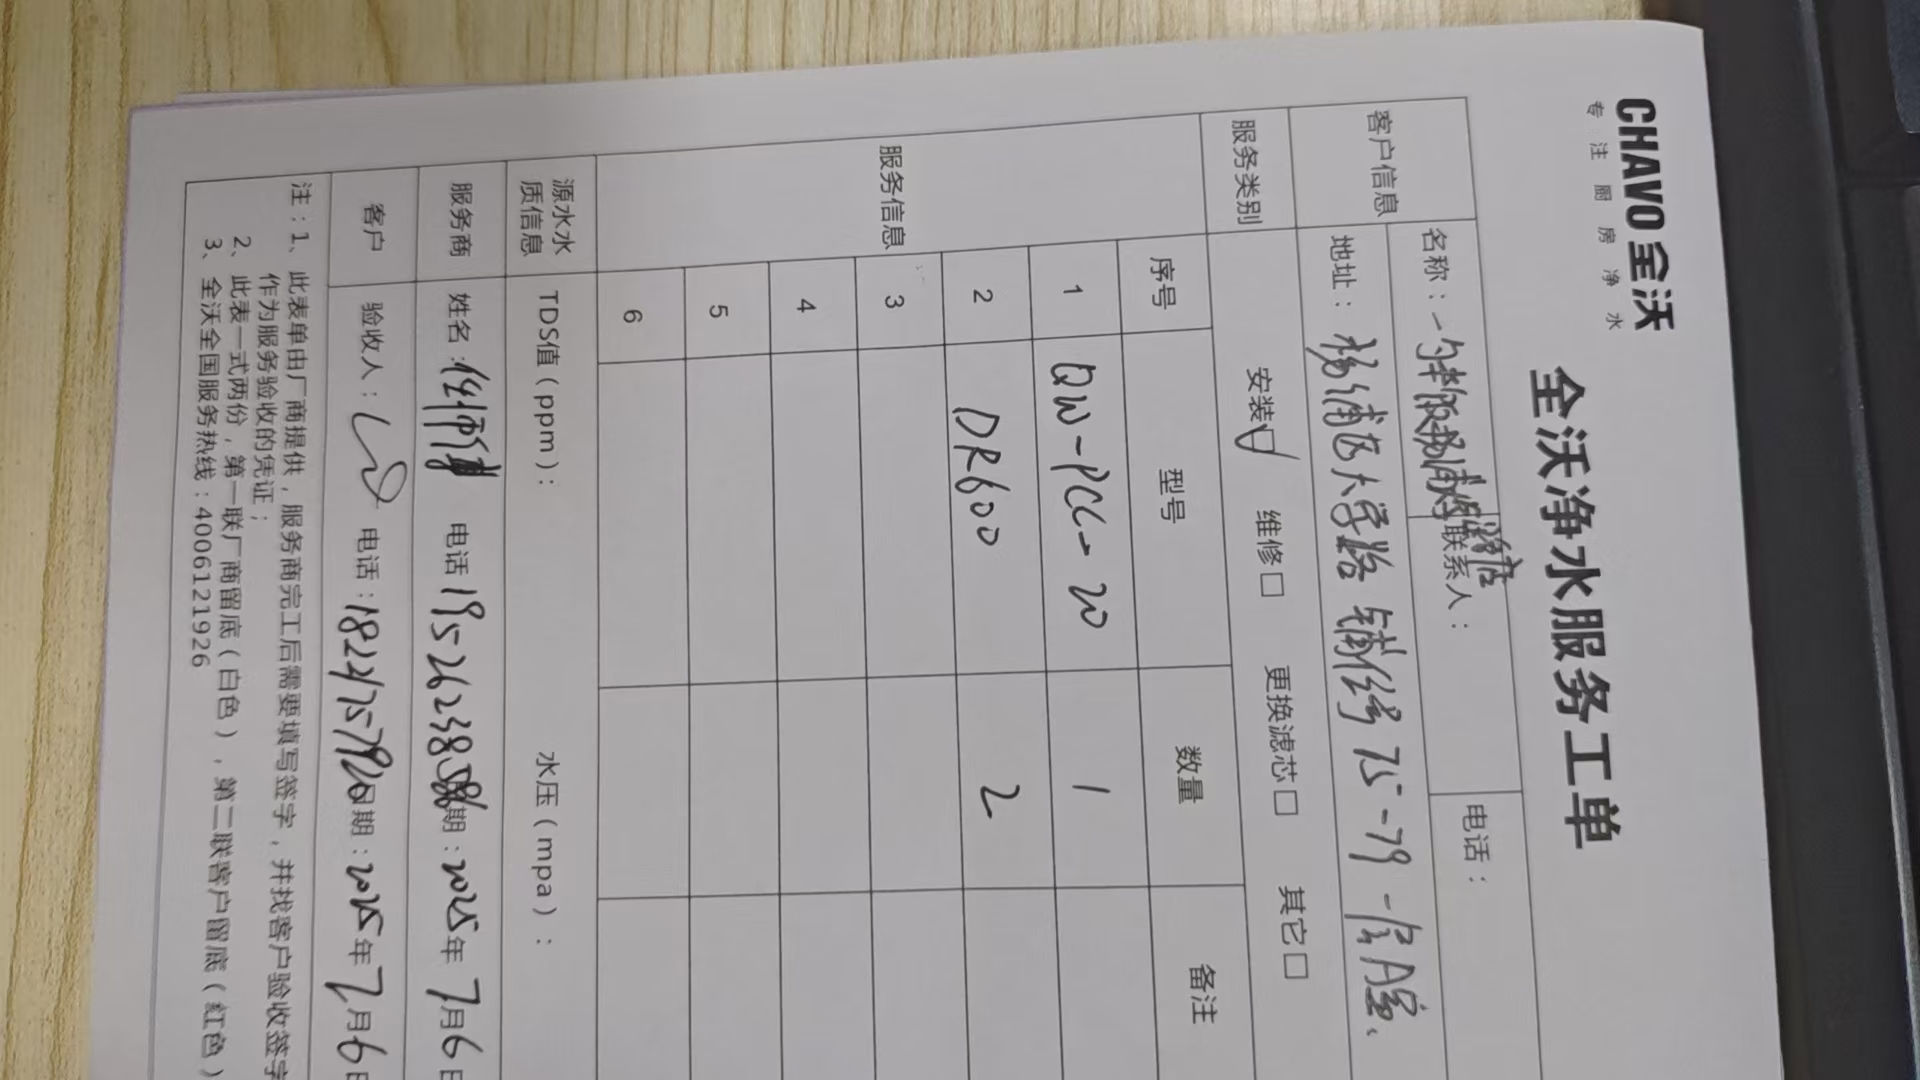 CHAVO 全沃
专注厨房净水
全沃净水服务工单
客户信息 名称： 联系人： 电话：
地址：杨浦区大学路 辅修 75-79 A室
服务类别 安装☑ 维修□ 更换滤芯□ 其它□
服务信息 序号 型号 数量 备注
1 QW-PCC-20 1
2 DR600 2
3
4
5
6
源水水质信息 TDS值（ppm）： 水压（mpa）：
服务商 姓名： 电话 日期：2025年7月6日
客户 验收人： 电话： 日期：2025年7月6日
注：1、此表单由厂商提供，服务商完工后需要填写签字，并找客户验收签字
作为服务验收的凭证；
2、此表一式两份，第一联厂商留底（白色），第二联客户留底（红色）
3、全沃全国服务热线：4006121926